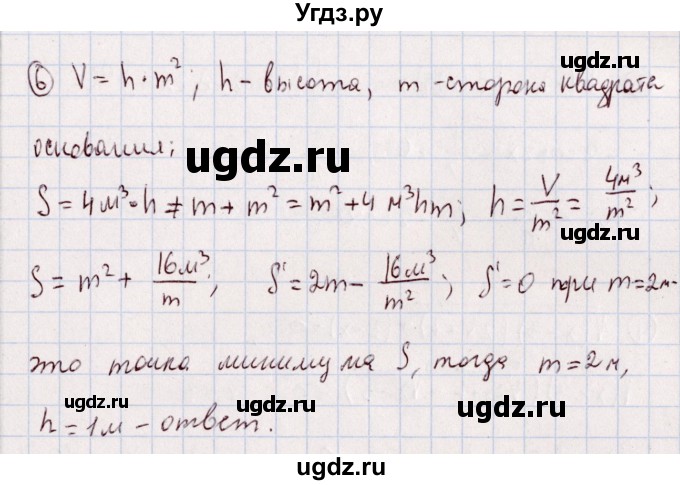 Угдз.ру
ugdz.ru
⑥ V = h · m²; h - высота, m - сторона квадрата
основания;
ugdz.ru
S = 4м³·h ≠ m + m² = m² + 4 м³hm; h = V/m² = 4м³/m²;
ugdz.ru ugdz.ru
S = m² + 16м³/m; S' = 2m - 16м³/m²; S' = 0 при m = 2м -
ugdz.ru
это точка минимума S, тогда m = 2м,
ugdz.ru ugdz.ru
h = 1м - ответ.
ugdz.ru
ugdz.ru